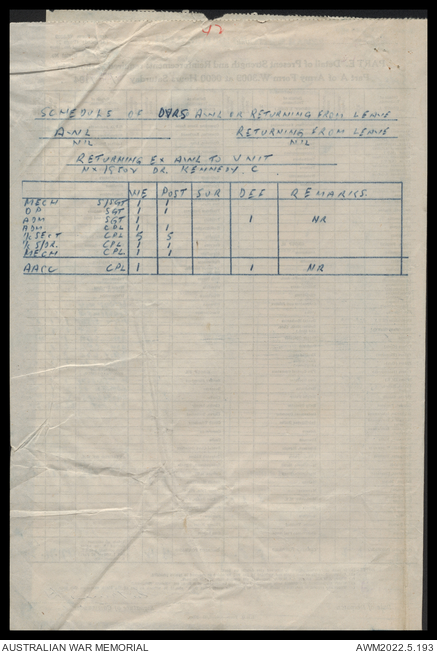 SCHEDULE OF DVRS AWL OR RETURNING FROM LEAVE
AWL RETURNING FROM LEAVE
NIL NIL
RETURNING EX AWL TO UNIT
DR. KENNEDY. C
WE POST SUR DEF REMARKS.
MECH S/SGT 1 1
OP SGT 1 1
ADM SGT 1 1 NR
ADM CPL 1 1
CPL 5 5
CPL 1 1
MECH CPL 1 1
AASC CPL 1 1 NR
AUSTRALIAN WAR MEMORIAL AWM2022.5.193